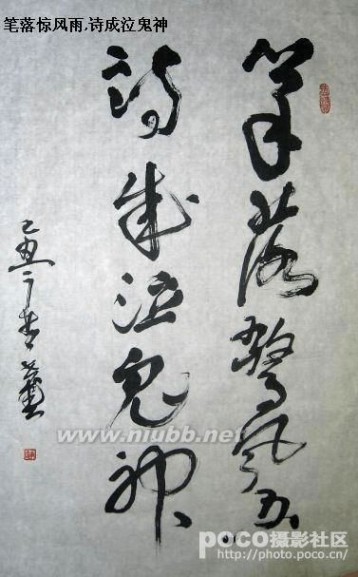 笔落惊风雨.诗成泣鬼神
筆落驚风雨
詩成泣鬼神
己丑
www.niubb.net
poco 摄影社区
http://photo.poco.cn/